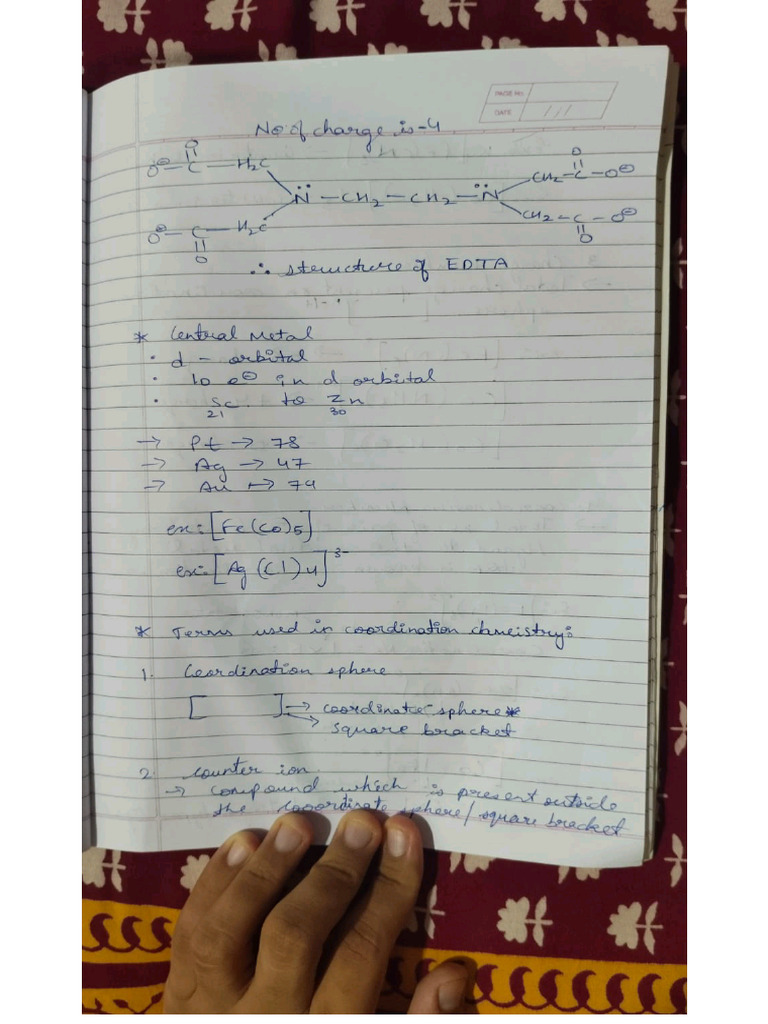 PAGE NO.
DATE
No of charge is -4
O
O⊖ — C — H2C
O
CH2 — C — O⊖
N̈ — CH2 — CH2 — N̈
O⊖ — C — H2C
O
CH2 — C — O⊖
O
∴ structure of EDTA
* Central Metal
• d - orbital
• 10 e⊖ in d orbital
• Sc to Zn
21 30
→ Pt → 78
→ Ag → 47
→ Au → 79
ex:- [Fe(CO)5]
ex:- [Ag(Cl)4]3-
* Terms used in coordination chmeistry:
1. Coordination sphere
[ ] → coordinate sphere*
→ square bracket
2. counter ion
→ compound which is present outside
the cooordinate sphere/square bracket